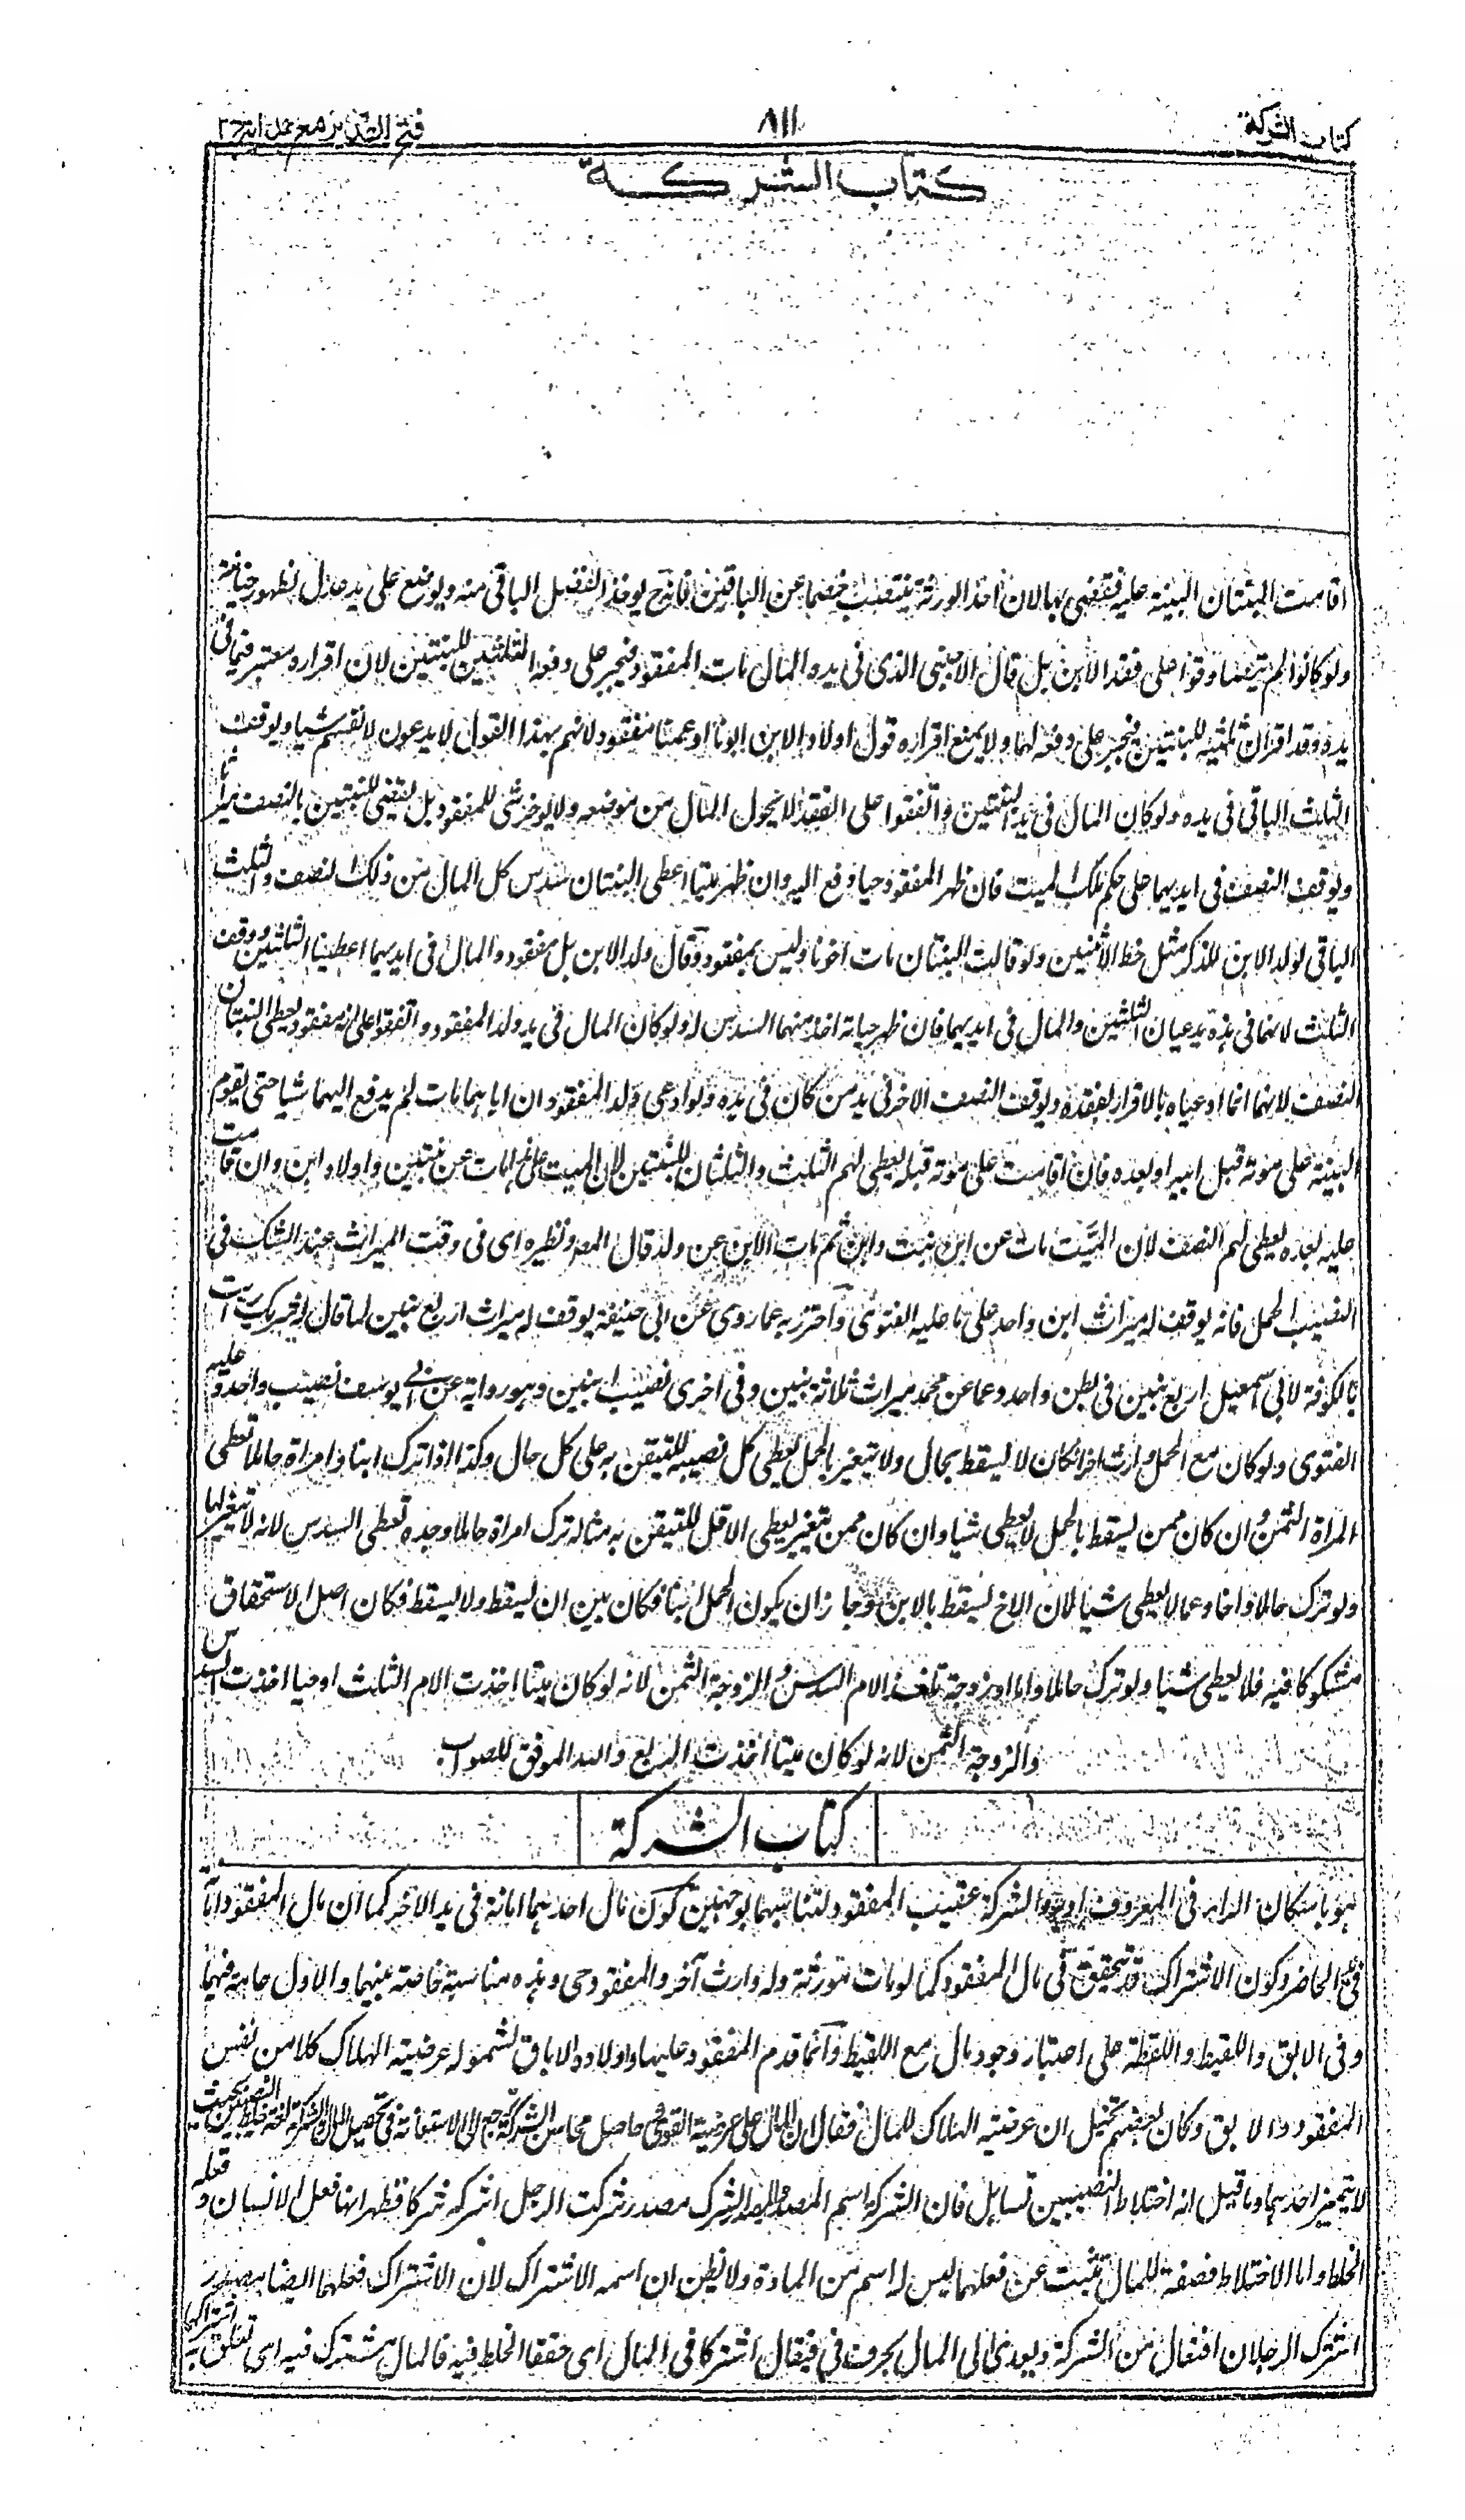 كتاب الشركة
٨١١
فتح القدير مع هداية ج ٢
كتاب الشركة
اقامت البنتان البينة عليه فقضى بها لان احد الورثة ينتصب خصما عن الباقين فانه ح يوخذ الفضل الباقى منه ويوضع على يد عدل لظهور خيانته
ولو كانوا لم يتصادقوا على فقد الابن بل قال الاجنبى الذى فى يده المال مات المفقود فيجبر على دفع الثلثين للبنتين لان اقراره معتبر فيما فى
يده وقد اقر ان ثلثيه للبنتين فيجبر على دفعه لهما ولا يمنع اقراره قول اولاد الابن ابونا او عمنا مفقود لانهم بهذا القول لا يدعون لانفسهم شيا ويوقف
الثلث الباقى فى يده ولو كان المال فى يد البنتين واتفقوا على الفقد لا يحول المال من موضعه ولا يوخذ شى للمفقود بل يقضى للبنتين بالنصف ميراثا
ويوقف النصف فى ايديهما على حكم ملك الميت فان ظهر المفقود حيا دفع اليه وان ظهر ميتا اعطى البنتان سدس كل المال من ذلك النصف والثلث
الباقى لولد الابن للذكر مثل حظ الانثيين ولو قالت البنتان مات اخونا وليس بمفقود وقال ولد الابن بل مفقود والمال فى ايديهما اعطيتا الثلثين ووقف
الثلث لانهما فى هذه يدعيان الثلثين والمال فى ايديهما فان ظهر حياته اخذ منهما السدس له ولو كان المال فى يد ولد المفقود واتفقوا على انه مفقود يعطى البنتان
النصف لانهما انما ادعياه بالاقرار بفقده ويوقف النصف الاخر فى يد من كان فى يده ولو ادعى ولد المفقود ان اباهما مات لم يدفع اليهما شيا حتى يقوم
البينة على موته قبل ابيه او بعده فان اقامت على موته قبله يعطى لهم الثلث والثلثان للبنتين لان الميت على هذا مات عن بنتين واولاد ابن وان قامت
عليه بعده يعطى لهم النصف لان الميت مات عن ابن وبنت وابن ثم مات الابن عن ولد قال المص ونظيره اى فى وقت الميراث عند الشك فى
النصيب الحمل فانه يوقف له ميراث ابن واحد على ما عليه الفتوى واحترز به عما روى عن ابى حنيفة يوقف له ميراث اربع بنين لما قال شريك رايت
بالكوفة لابى اسمعيل اربع بنين فى بطن واحد وعما عن محمد ميراث ثلاثة بنين وفى اخرى نصيب ابنين وهو رواية عن ابى يوسف نصيب واحد وعليه
الفتوى ولو كان مع الحمل وارث اخر انكان لا يسقط بحال ولا يتغير بالحمل يعطى كل نصيبه للتيقن به على كل حال وكذا اذا ترك ابنا وامراة حاملا تعطى
المراة الثمن وان كان ممن يسقط بالحمل لا يعطى شيا وان كان ممن يتغير يعطى الاقل للتيقن به مثاله ترك امراة حاملا وجدة تعطى السدس لانه لا تتغير لها
ولو ترك حاملا واخا وعما لا يعطى شيا لان الاخ يسقط بالابن وجاز ان يكون الحمل ابنا فكان بين ان يسقط ولا يسقط فكان اصل الاستحقاق
مشكوكا فيه فلا يعطى شيا ولو ترك حاملا واما او زوجة تاخذ الام السدس والزوجة الثمن لانه لو كان ميتا اخذت الام الثلث او حيا اخذت السدس
والزوجة الثمن لانه لو كان ميتا اخذت الربع والله الموفق للصواب
كتاب الشركة
هو باسكان الراء فى المعروف اورد الشركة عقيب المفقود لتناسبهما بوجهين كون مال احدهما امانة فى يد الاخر كما ان مال المفقود امانة
فى يد الحاضر وكون الاشتراك قد يتحقق فى مال المفقود كما لو مات مورثه وله وارث آخر والمفقود حى وهذه مناسبة خاصة بينهما والاول عامة فيهما
وفى الابق واللقيط واللقطة على اعتبار وجود مال مع اللقيط وانما قدم المفقود عليها واولاه الاباق لشموله عرضية الهلاك كلا من نفس
المفقود والابق وكان بعضهم تخيل ان عرضية الهلاك للمال فقال ان المال على عرضية التوى حاصل محاسن الشركة يرجع الى الاستعانة فى تحصيل المال والشركة لغة خلط النصيبين بحيث
لا يتميز احدهما وما قيل انه اختلاط النصيبين تساهل فان الشركة اسم المصدر والمصدر الشرك مصدر شركت الرجل اشركه شركا فظهر انها فعل الانسان وفعله
الخلط واما الاختلاط فصفة للمال تثبت عن فعلهما ليس له اسم من المادة ولا يظن ان اسمه الاشتراك لان الاشتراك فعلهما ايضا مصدر
اشترك الرجلان افتعال من الشركة ويعدى الى المال بحرف فى فيقال اشتركا فى المال اى حققا الخلط فيه فالمال مشترك فيه اى تعلق به اشتراكهما